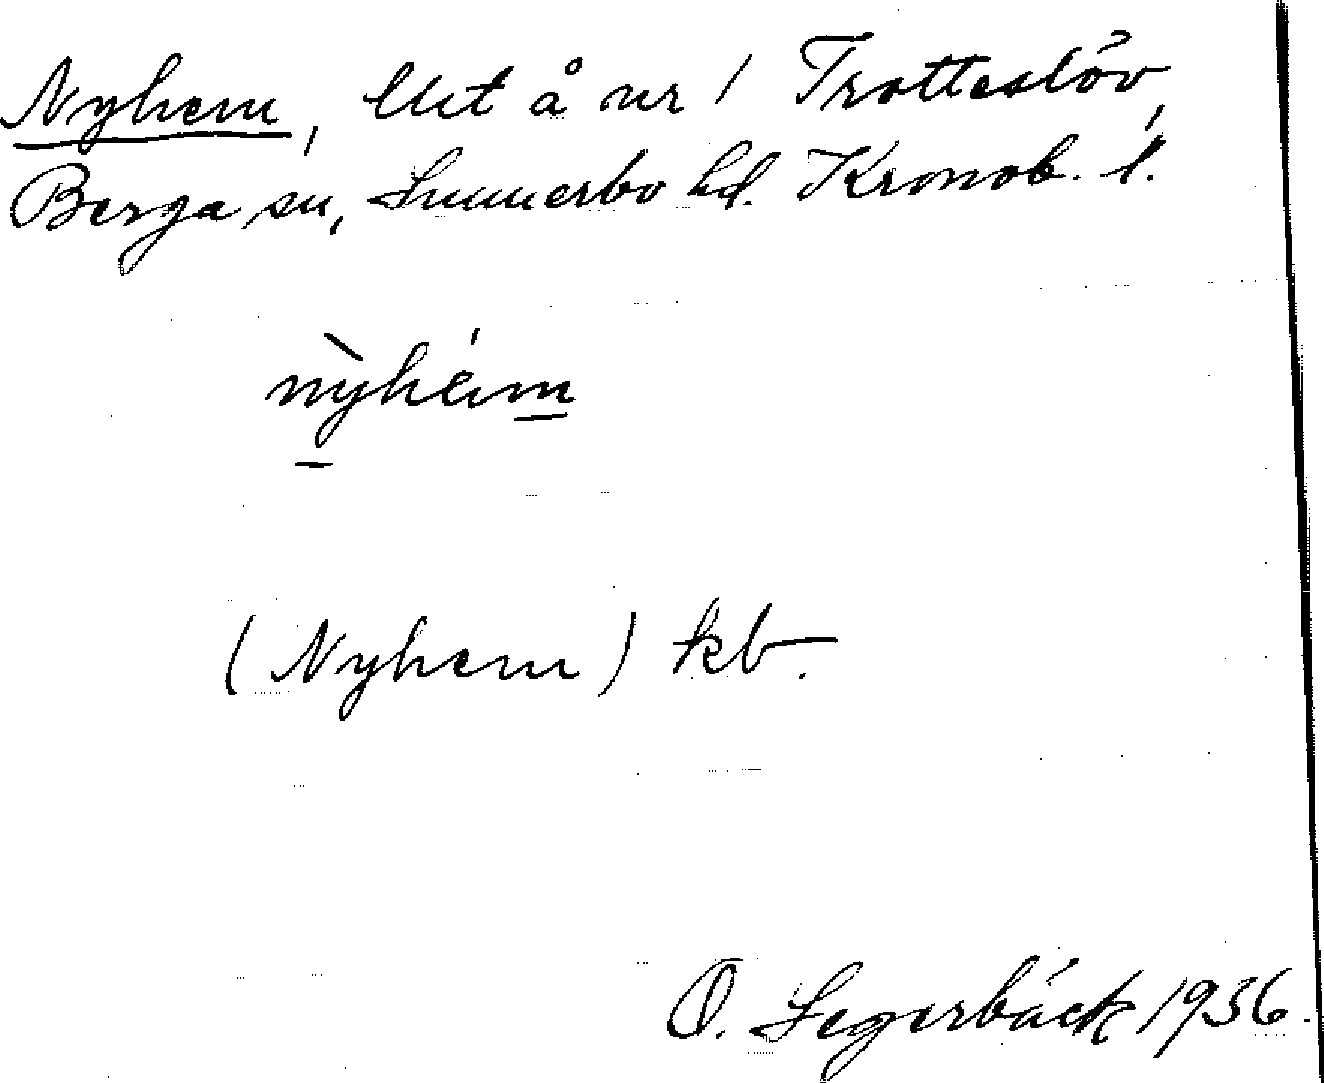 Nyhem, lht å nr 1 Trotteslöv,
Berga sn, Sunnerbo hd. Kronob. l.
nỳhéim
(Nyhem) kb.
O. Segerbäck 1936.